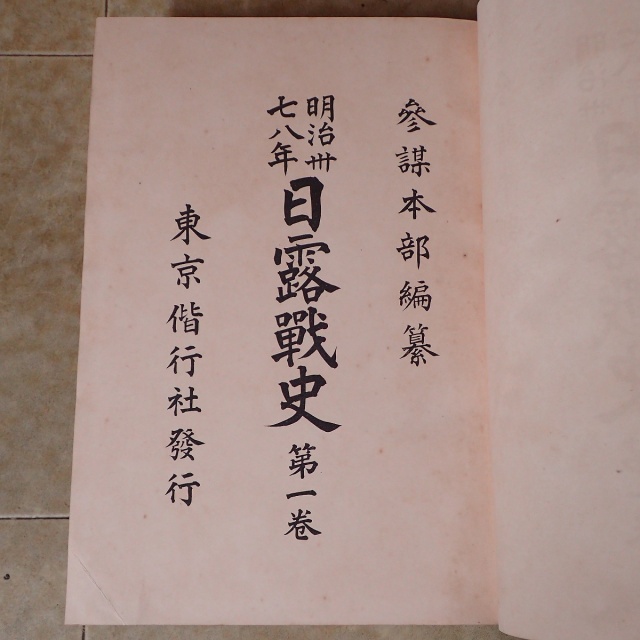 參謀本部編纂
明治卅
七八年
日露戰史 第一卷
東京偕行社發行